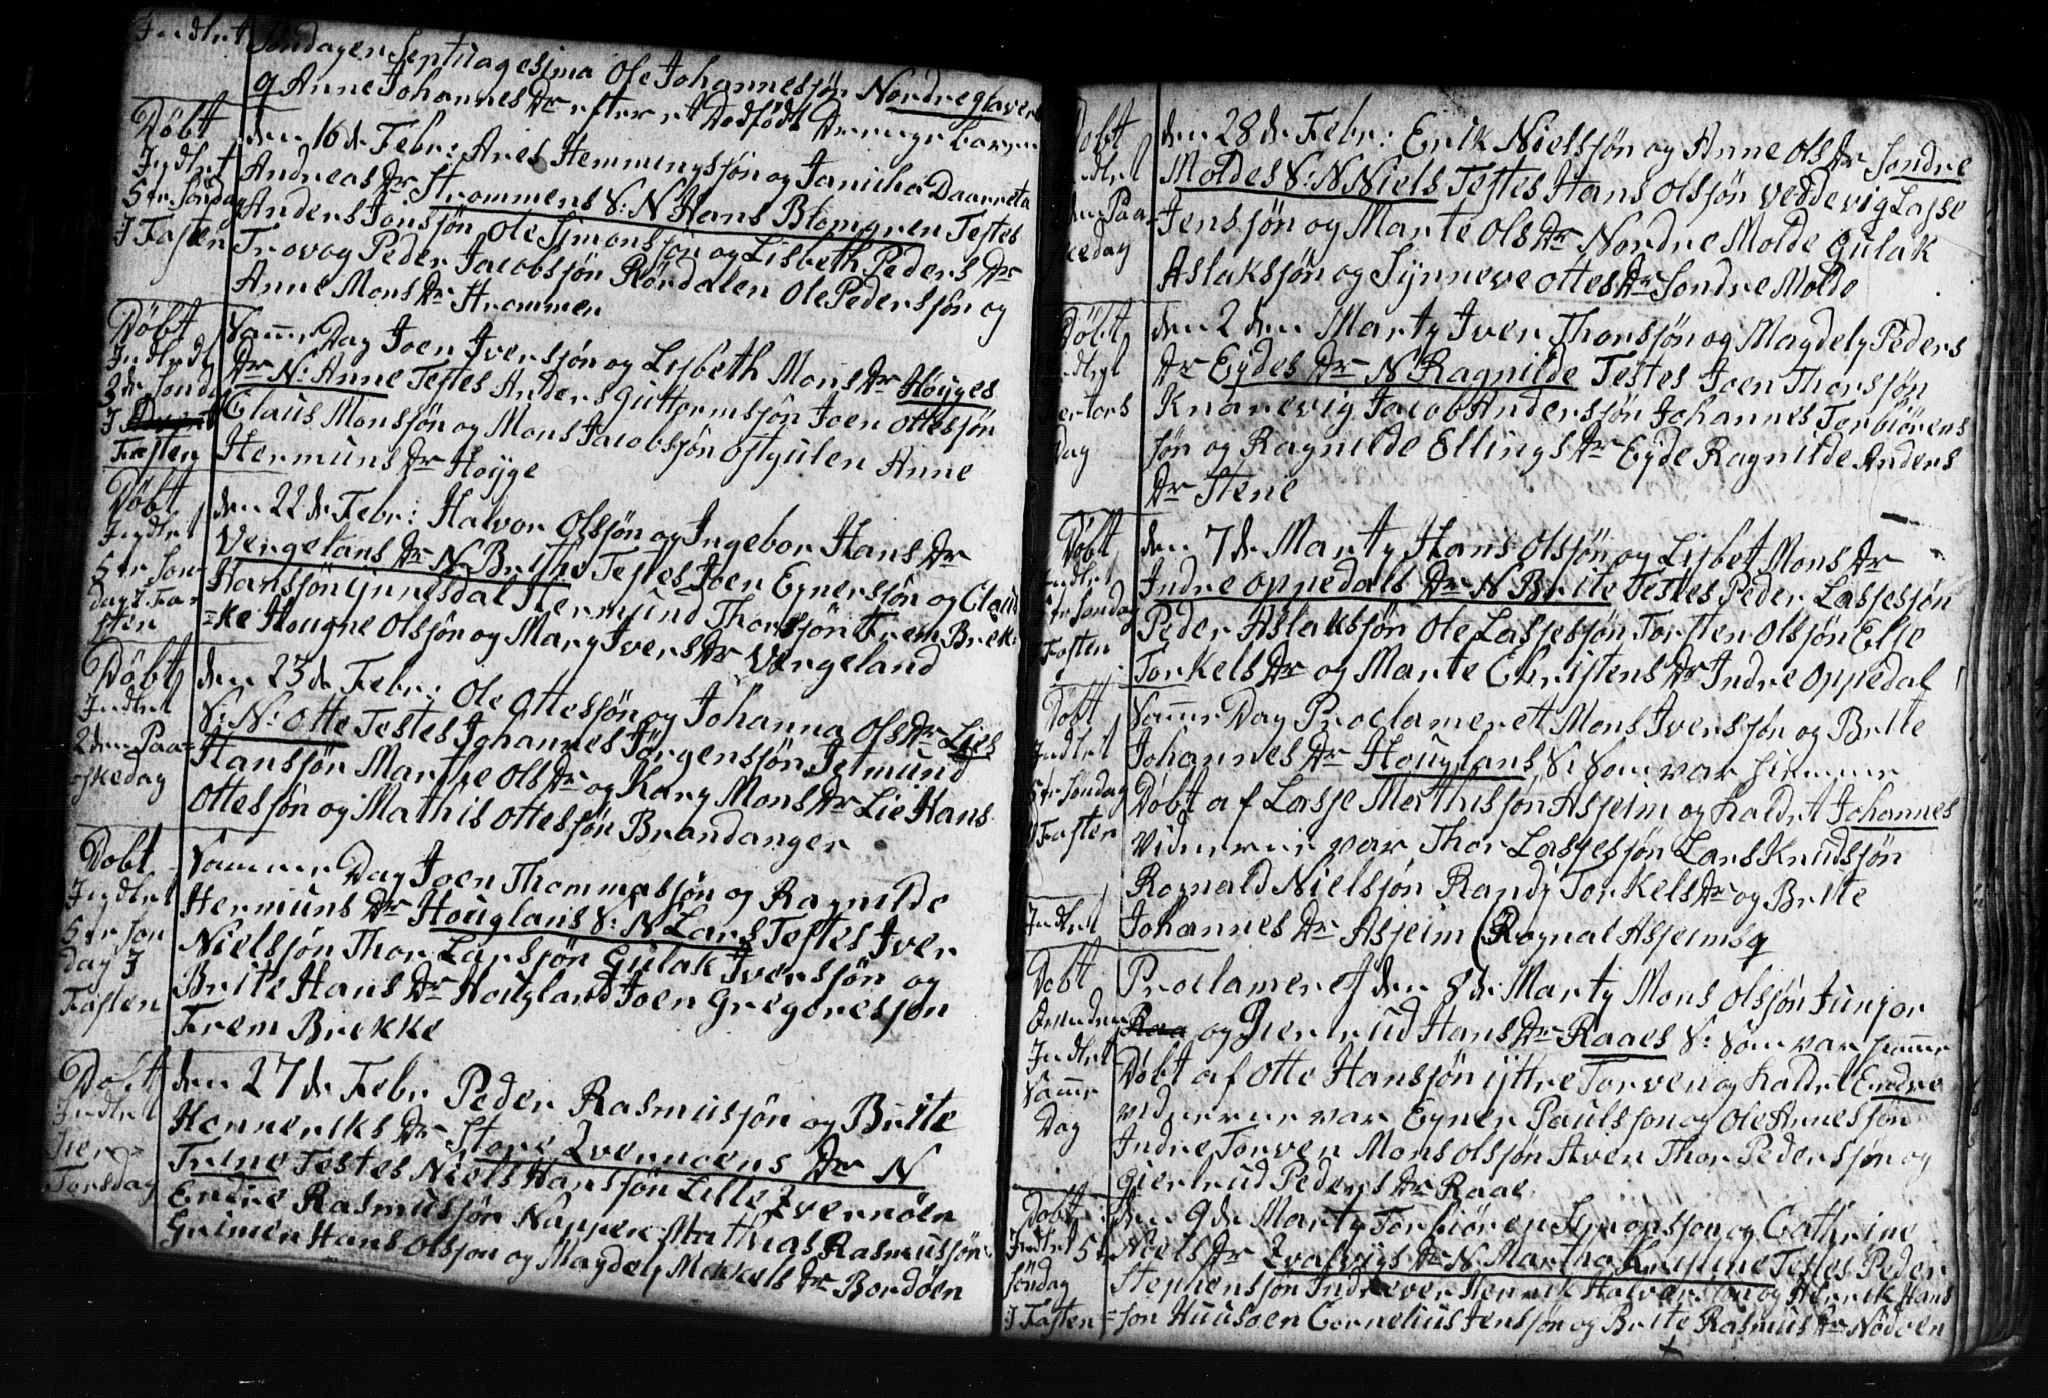 Indlet
Søndagen Septuagesima Ole Johannessjøn Nordreglavers
q Anne Johannes Dr efter et Dødfødt Drenge barn
Døbt
Indlet
5te Søndag
I Fasten
den 16de Febr: Ares Hemmingssjøn og Janicha Daarreta
Andreas Dr Strommens S: N Hans Blomgren Testes
Anders Jonssjøn Ole Simonssjøn og Lisbeth Peders Dr
Trovog Peder Jacobssjøn Rørdalen Ole Pederssjøn og
Anne Mons Dr Strommen
Døbt
Indledt
3de Sønd
I Advent
Fasten
Samme Dag Joen Iverssjøn og Lisbeth Mons Dr Høyges
Dr N: Anne Testes Anders Guttormssjøn Joen Ottessjøn
Claus Monssjøn og Mons Jacobssjøn Østgulen Anne
Hermuns Dr Høyge
Døbt
Indlet
5te Søn
dag I Fa
sten
den 22de Febr: Halvor Olssjøn og Ingebor Hans Dr
Vergelans Dr N Brithe Testes Joen Egnersjøn og Claus
Hanssjøn Ginnesdal Hermund Thorssjøn Frem Brek
=ke Hougne Olssjøn og Mary Ivers Dr Vergeland
Døbt
Indlet
2den Paa=
skedag
den 23de Febr: Ole Ottessjøn og Johanna Ols Dr Lies
S: N: Otte Testes Johannes Jørgenssjøn Jetmund
Hanssjøn Marthe Ols Dr og Kary Mons Dr Lie Hans
Ottessjøn og Mathis Ottessjøn Brandanger
Dobt
Indlet
5te Søn
dag I
Fasten
Samme Dag Joen Thommassjøn og Ragnilde
Hermuns Dr Houglans S: N Lars Testes Iver
Nielssjøn Thor Larssjøn Gulak Iverssjøn og
Brite Hans Dr Hougland Joen Gregoressjøn
Frem Brekke
Døbt
Indlet
Skier
Torsdag
den 27de Febr Peder Rasmussjøn og Brite
Hennericks Dr Store Qvernøens Dr N
Trine Testes Niels Hanssjøn Lille Qvernøen
Endre Rasmussjøn Nappen Mathias Rasmussjøn
Grimen Hans Olssjøn og Magdely Mikkels Dr Bordøen
Døbt
Indlet
2den Paa=
skedag
den 28de Febr: Erik Nielssjøn og Anne Ols Dr Søndre
Moldes S: N Niels Testes Hans Olssjøn Veddevig Lasse
Jenssjøn og Marte Ols Dr Nordre Molde Gulak
Aslakssjøn og Synneve Ottes Dr Søndre Molde
Døbt
Indlet
Skertors
Dag
den 2den Marty Iver Thorssjøn og Magdely Peders
Dr Eydes Dr N Ragnilde Testes Joen Thorssjøn
Knarevig Jacob Anderssjøn Johannes Torbiørens
sjøn og Ragnilde Ellings Dr Eyde Ragnilde Anders
Dr Stene
Døbt
Indlet
5te Søndag
I Fasten
den 7de Marty Hans Olssjøn og Lisbet Mons Dr
Indre Oppedals Dr N Brite Testes Peder Lassesjøn
Peder Aslakssjøn Ole Lassesjøn Torsten Olssjøn Else
Torkels Dr og Marte Christens Dr Indre Oppedal
Døbt
Indlet
5te Søndag
I Fasten
Samme Dag Proclameret Mons Iverssjøn og Brite
Johannes Dr Houglans S: Som var hiemme
Døbt af Lasse Matthissjøn Asjeim og kaldet Johannes
Vidnerne var Thor Lassesjøn Lars Knudssjøn
Rognald Nielssjøn Randj Torkels Dr og Brite
Indlet
Johannes Dr Asjeim (Rognal Asjeims q
Døbt
Indlet
Samme
Dag
Proclameret den 8de Marty Mons Olssjøn Junior
Raa og Giertrud Hans Dr Raaes S: Som var hiemme
Døbt af Otte Hanssjøn Yttre Torven og kaldet Endre
Vidnerne var Egner Paulssjøn og Ole Annessjøn
Indre Torven Mons Olssjøn Hven Thor Pederssjøn og
Giertrud Peders Dr Raae
Døbt
Indlet 5te
Søndag
I Fasten
den 9de Marty Torbiøren Simonssjøn og Cathrine
Niels Dr Qvalvigs Dr N Martha Krestine Testes Peder
Stephenssjøn Indrever Henrik Halverssjøn og Henrik Hans
=søn Huusøen Cornelius Jenssjøn og Brite Rasmus Dr Nødøen